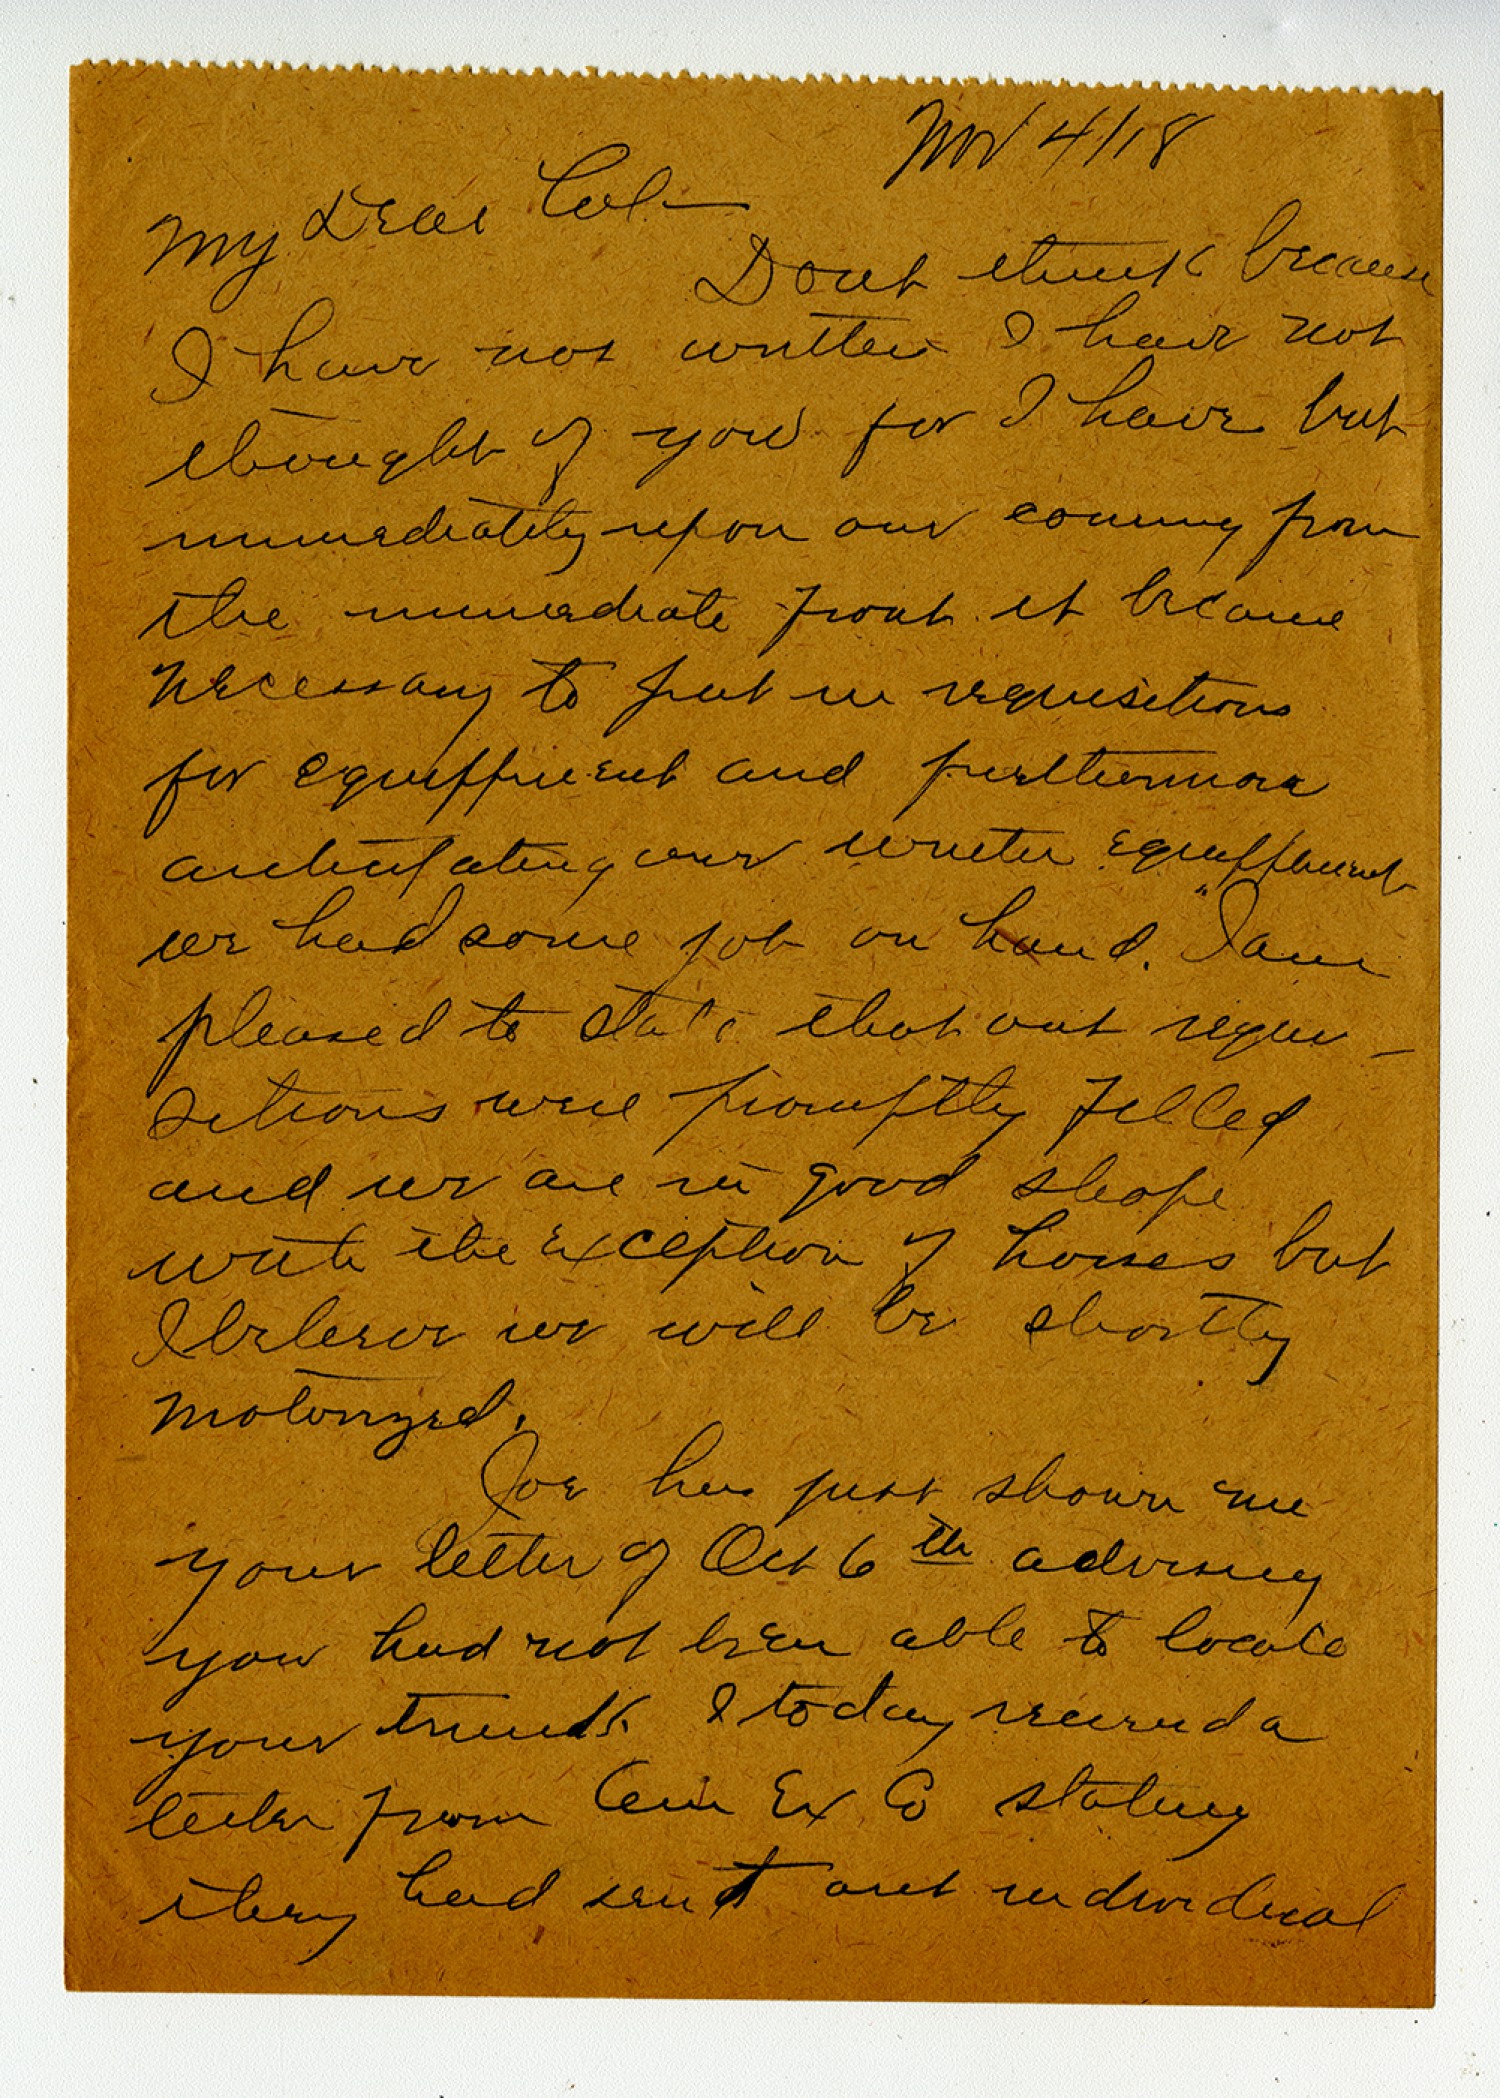 Nov 4/18
My Dear Col-
Dont think because
I have not written I have not
thought of you for I have but
immediately upon our coming from
the immediate front it became
necessary to put in requisitions
for equippment and furthermore
anticipating our winter equippment
we had some job on hand. I am
pleased to state that out requi-
sitions were promptly filled
and we are in good shape
with the exception of horses but
I believe we will be shortly
motorized.
Joe has just shown me
your letter of Oct 6th advising
you had not been able to locate
your trunk. I today received a
letter from Am Ex Co stating
they had sent out individual